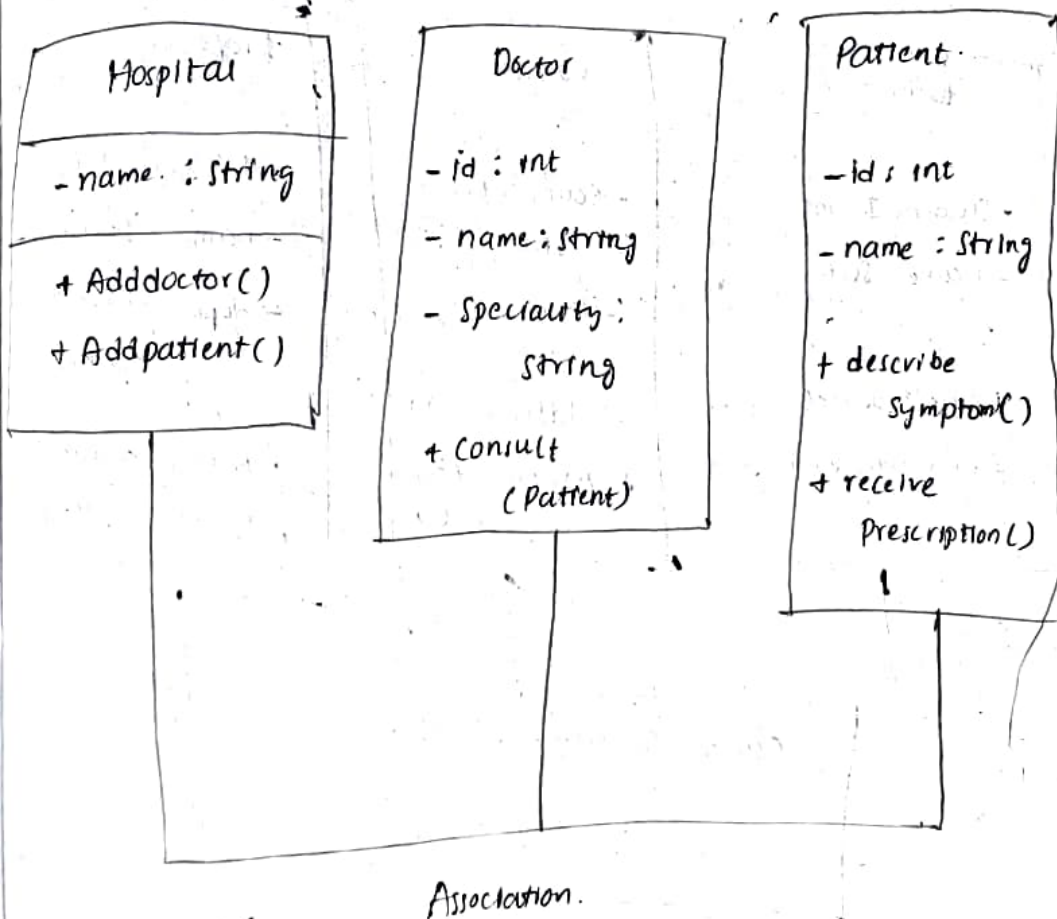 Hospital
- name : String
+ Adddoctor()
+ Addpatient()
Doctor
- id : int
- name : String
- Speciality :
String
+ Consult
(Patient)
Patient.
- id : int
- name : String
+ describe
Symptom()
+ receive
Prescription()
Association.